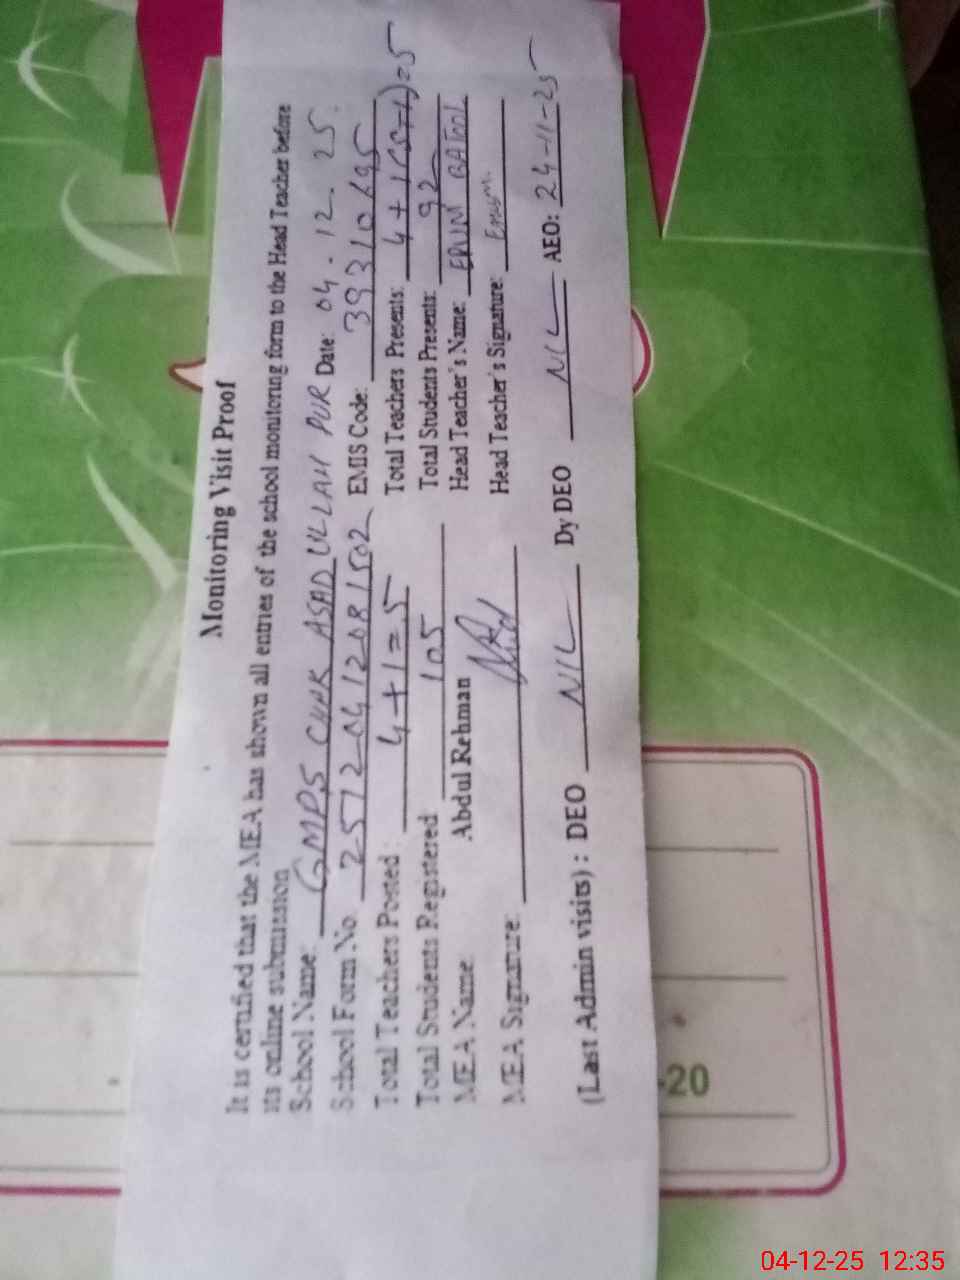 Monitoring Visit Proof
It is certified that the MEA has shown all entries of the school monitoring form to the Head Teacher before
its online submission
School Name: GMPS CHAK ASAD ULLAH PUR Date: 04.12.25.
School Form No. 25120412081502 EMIS Code: 39310695
Total Teachers Posted: 4+1=5 Total Teachers Presents: 4+1(ST-1)=5
Total Students Registered 105 Total Students Presents: 92
MEA Name: Abdul Rehman Head Teacher's Name: ERUM BATOOL
MEA Signature: Head Teacher's Signature: Erum.
(Last Admin visits) : DEO NIL Dy DEO NIL AEO: 24-11-25
-20
04-12-25 12:35